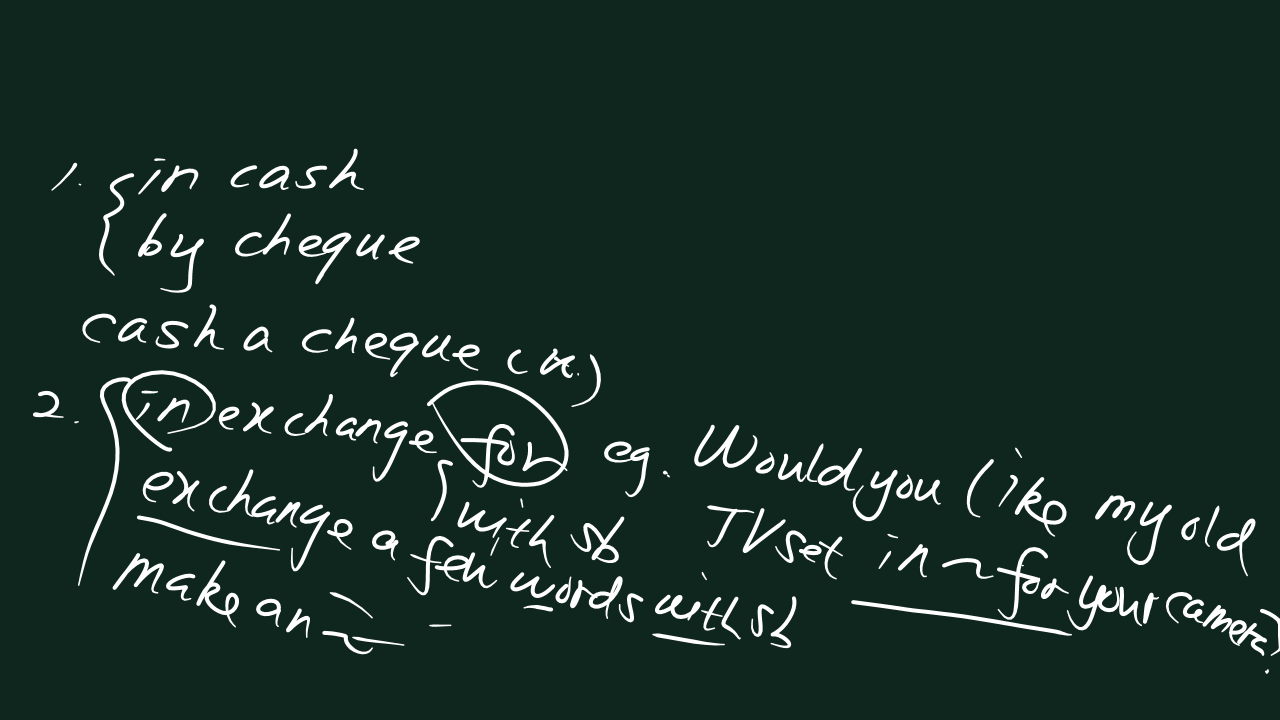 1. in cash
by cheque
cash a cheque (v.)
2. in exchange for eg. Would you like my old
with sb TV set in ~ for your camera?
exchange a few words with sb
make an ~